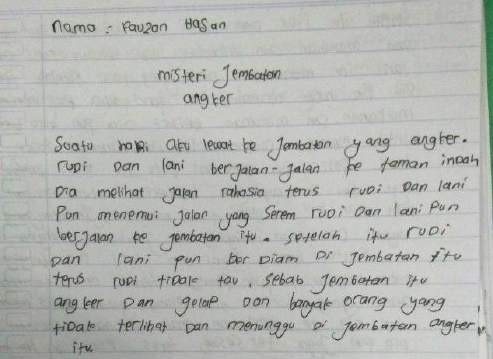 Nama : Fauzan Hasan
misteri Jembatan
angker
Suatu hari aku lewat ke Jembatan yang angker.
rudi Dan lani berjalan-jalan ke taman indah
Dia melihat jalan rahasia terus rudi Dan lani
Pun menemui jalan yang Serem rudi Dan lani Pun
berjalan ke jembatan itu. setelah itu rudi
Dan lani pun ber Diam Di jembatan itu
terus rudi tidak tau, sebab jembatan itu
angker Dan gelap Dan banyak orang yang
tidak terlihat Dan menunggu Di jembatan angker
itu